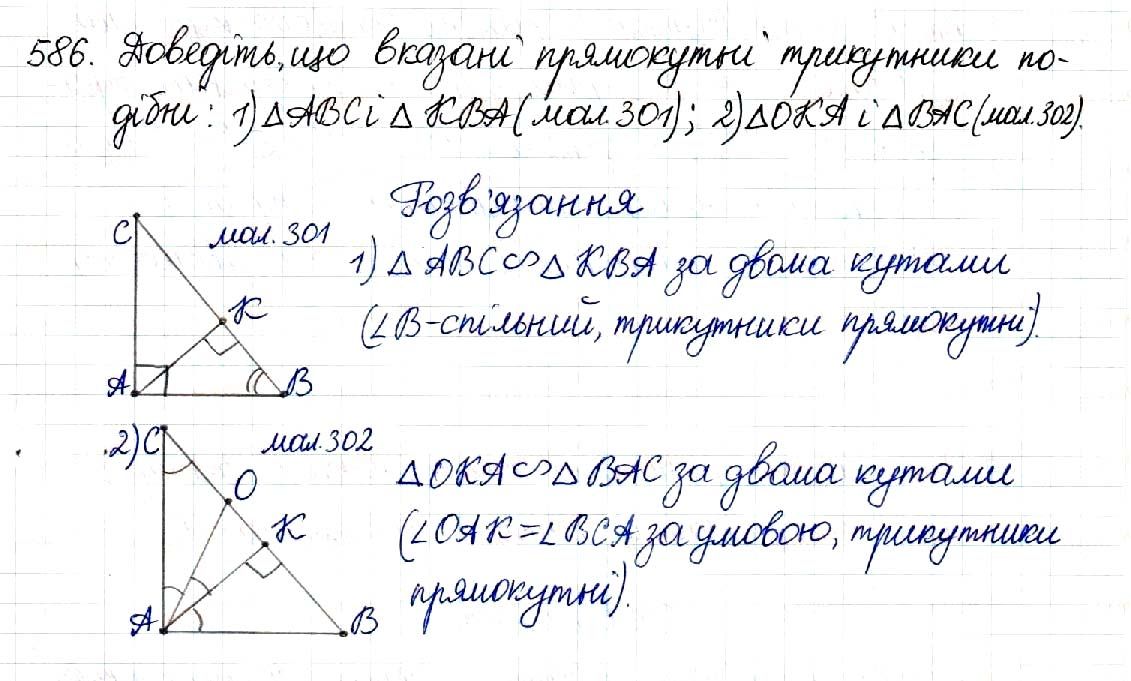 586. Доведіть, що вказані прямокутні трикутники по-
дібні: 1) △ABC і △KBA (мал. 301); 2) △OKA і △BAC (мал. 302).
Розв'язання
C
мал. 301
1) △ABC ∽ △KBA за двома кутами
K
(∠B - спільний, трикутники прямокутні).
A
B
2) C
мал. 302
△OKA ∽ △BAC за двома кутами
O
K
(∠OAK = ∠BCA за умовою, трикутники
прямокутні).
A
B